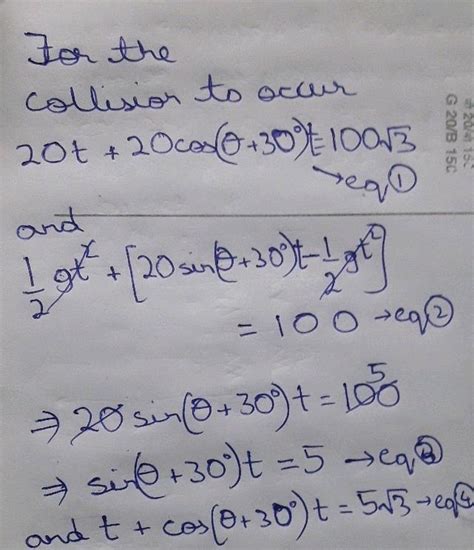 For the
collision to occur
20t + 20cos(θ+30°)t = 100√3
→ eq ①
and
1/2 gt² + [20 sin(θ+30°)t - 1/2 gt²]
= 100 → eq ②
⇒ 20 sin(θ+30°)t = 100 5
⇒ sin(θ+30°)t = 5 → eq ③
and t + cos(θ+30°)t = 5√3 → eq ④
G 20/B 15C